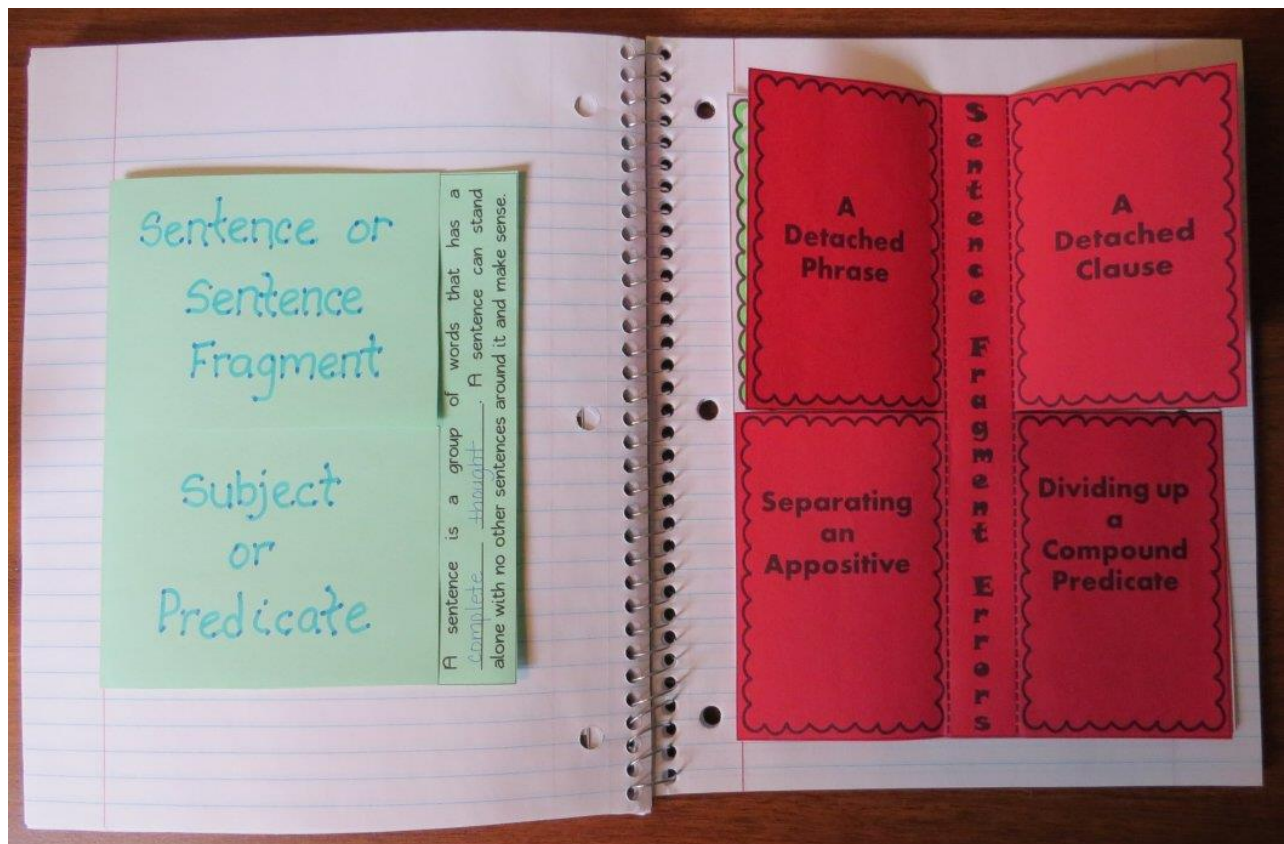 Sentence or
Sentence
Fragment
Subject
or
Predicate
A sentence is a group of words that has a
complete thought. A sentence can stand
alone with no other sentences around it and make sense.
A
Detached
Phrase
Sentence Fragment Errors
A
Detached
Clause
Separating
an
Appositive
Dividing up
a
Compound
Predicate